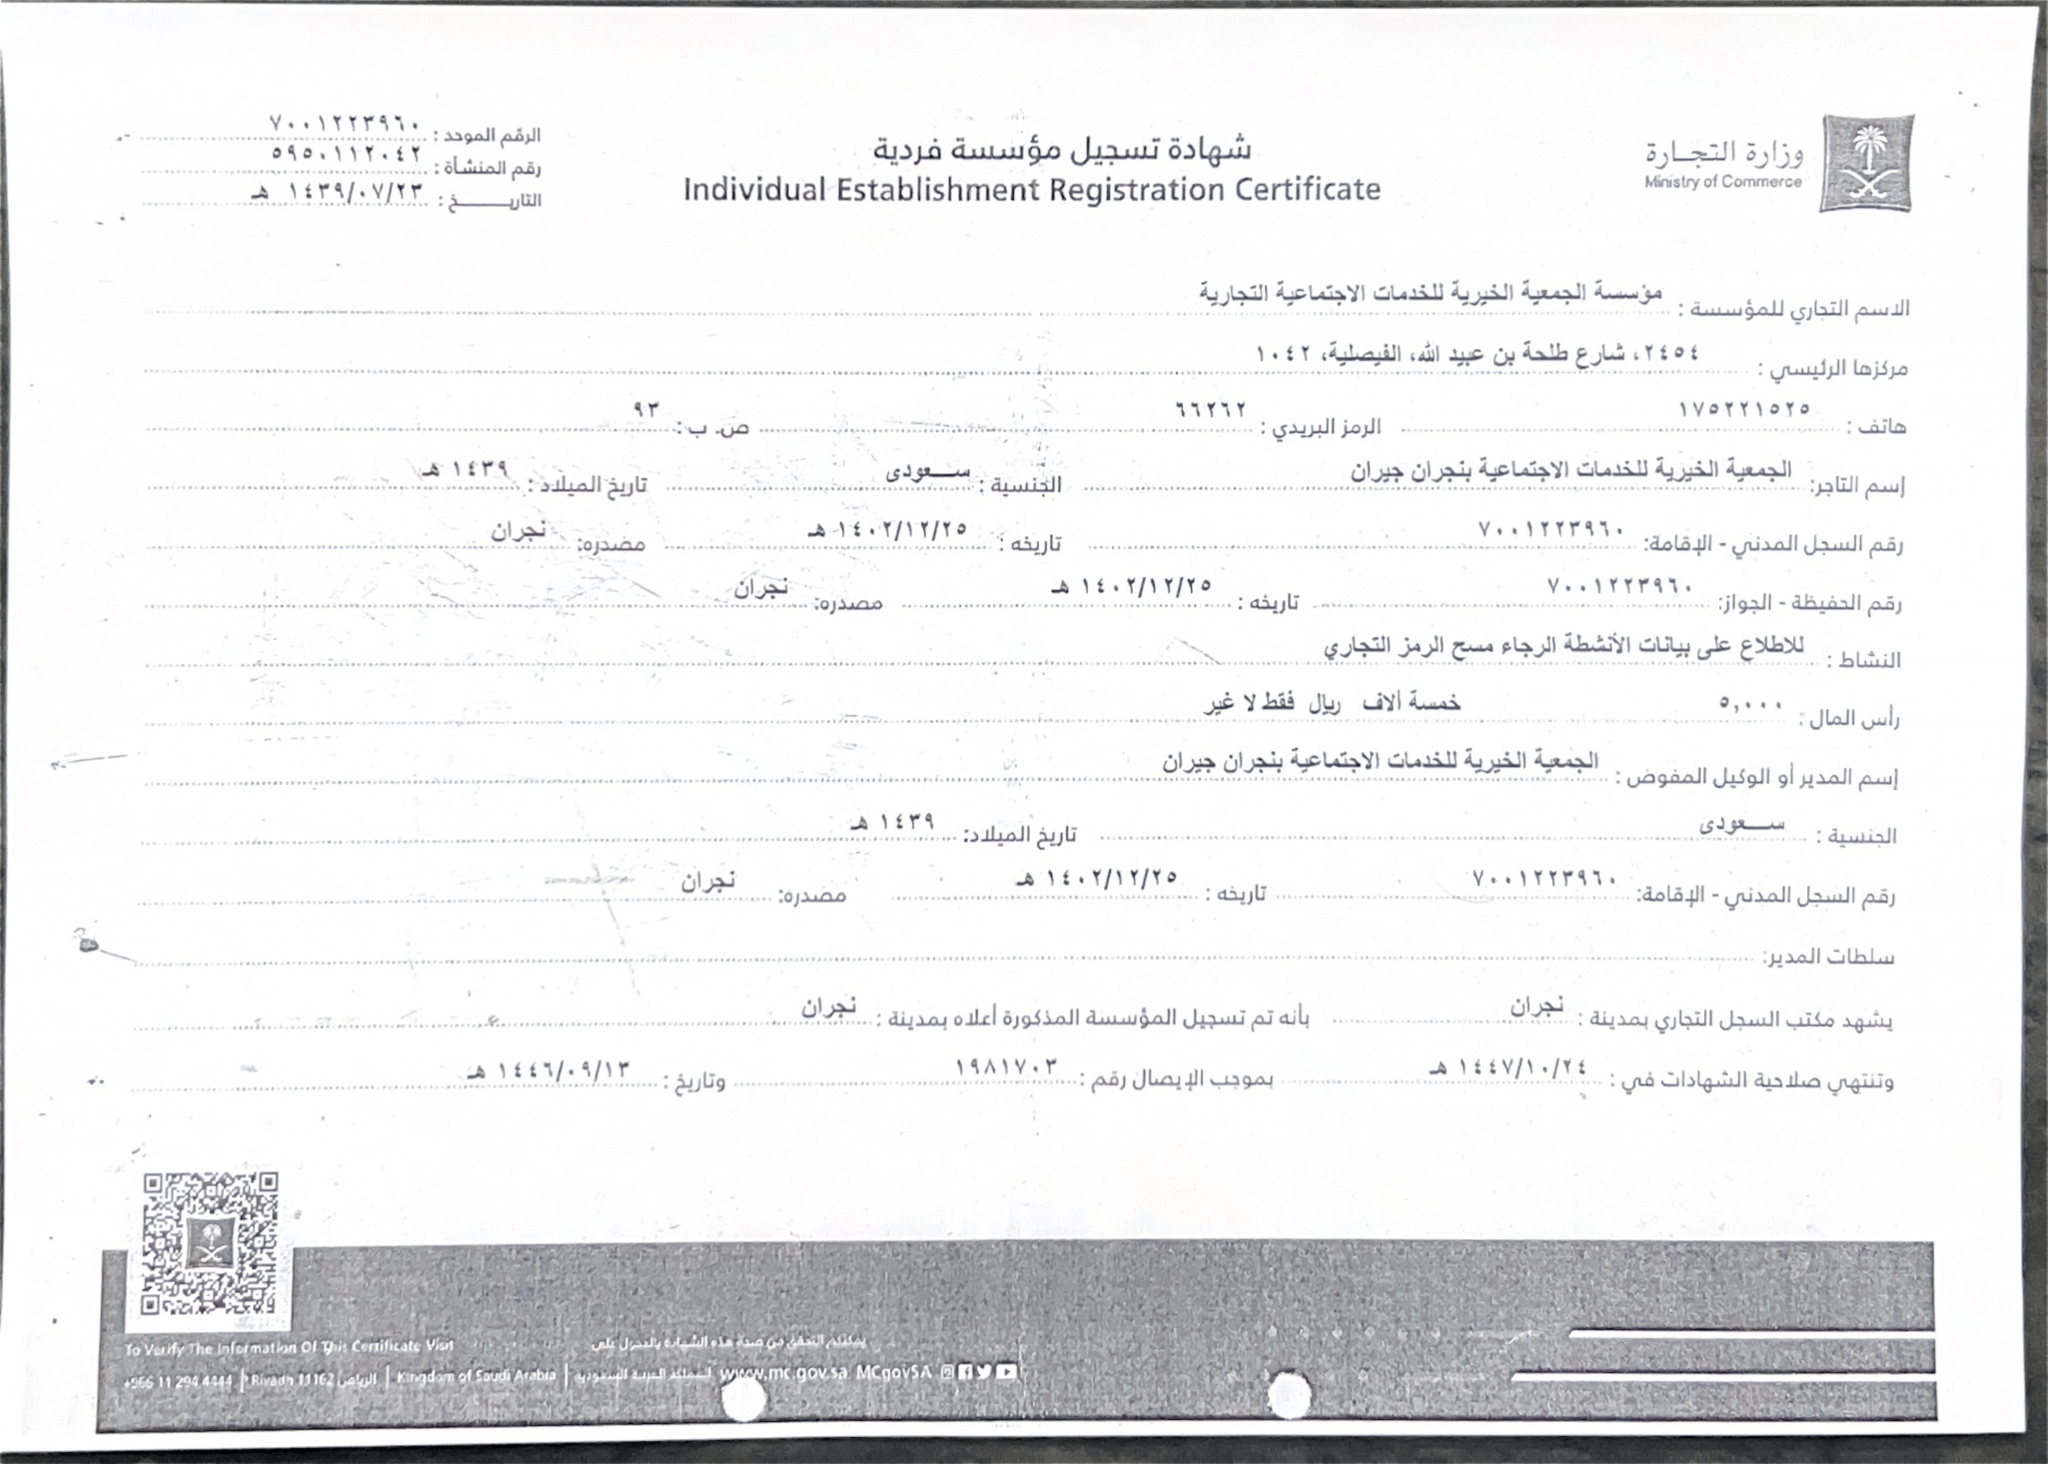 وزارة التجـارة
Ministry of Commerce
شهادة تسجيل مؤسسة فردية
Individual Establishment Registration Certificate
الرقم الموحد : ٧٠٠١٢٢٣٩٦٠
رقم المنشأة : ٥٩٥٠١١٢٠٤٢
التاريـــــخ : ١٤٣٩/٠٧/٢٣ هـ
الاسم التجاري للمؤسسة : مؤسسة الجمعية الخيرية للخدمات الاجتماعية التجارية
مركزها الرئيسي : ٢٤٥٤، شارع طلحة بن عبيد الله، الفيصلية، ١٠٤٢
هاتف : ١٧٥٢٢١٥٢٥ الرمز البريدي : ٦٦٢٦٢ ص. ب : ٩٣
إسم التاجر: الجمعية الخيرية للخدمات الاجتماعية بنجران جيران الجنسية : ســـعودى تاريخ الميلاد : ١٤٣٩ هـ
رقم السجل المدني - الإقامة: ٧٠٠١٢٢٣٩٦٠ تاريخه : ١٤٠٢/١٢/٢٥ هـ مصدره: نجران
رقم الحفيظة - الجواز: ٧٠٠١٢٢٣٩٦٠ تاريخه : ١٤٠٢/١٢/٢٥ هـ مصدره: نجران
النشاط : للاطلاع على بيانات الأنشطة الرجاء مسح الرمز التجاري
رأس المال : ٥,٠٠٠ خمسة آلاف ريال فقط لا غير
إسم المدير أو الوكيل المفوض : الجمعية الخيرية للخدمات الاجتماعية بنجران جيران
الجنسية : ســـعودى تاريخ الميلاد: ١٤٣٩ هـ
رقم السجل المدني - الإقامة: ٧٠٠١٢٢٣٩٦٠ تاريخه : ١٤٠٢/١٢/٢٥ هـ مصدره: نجران
سلطات المدير:
يشهد مكتب السجل التجاري بمدينة : نجران بأنه تم تسجيل المؤسسة المذكورة أعلاه بمدينة : نجران
وتنتهي صلاحية الشهادات في : ١٤٤٧/١٠/٢٤ هـ بموجب الإيصال رقم : ١٩٨١٧٠٣ وتاريخ : ١٤٤٦/٠٩/١٣ هـ
To Verify The Information Of This Certificate Visit يمكنكم التحقق من صحة هذه الشهادة بالدخول على
+966 11 294 4444 | Riyadh 11162 الرياض | Kingdom of Saudi Arabia | المملكة العربية السعودية www.mc.gov.sa MCgovSA